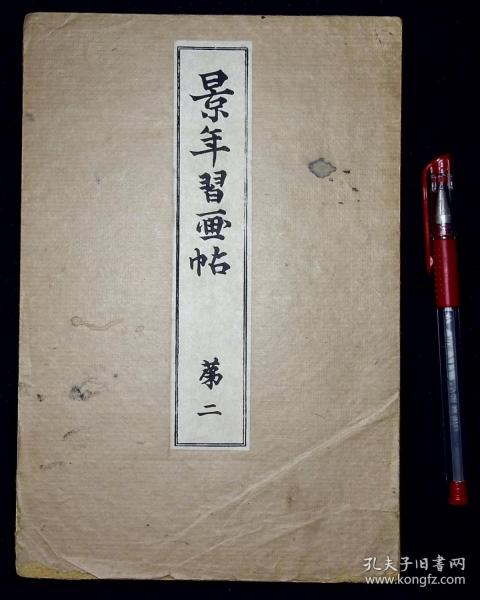 景年習画帖
第二
孔夫子旧书网
www.kongfz.com